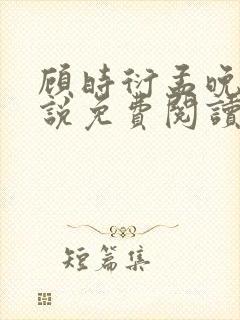 顾时衍孟晚
說免費閱讀
短篇集